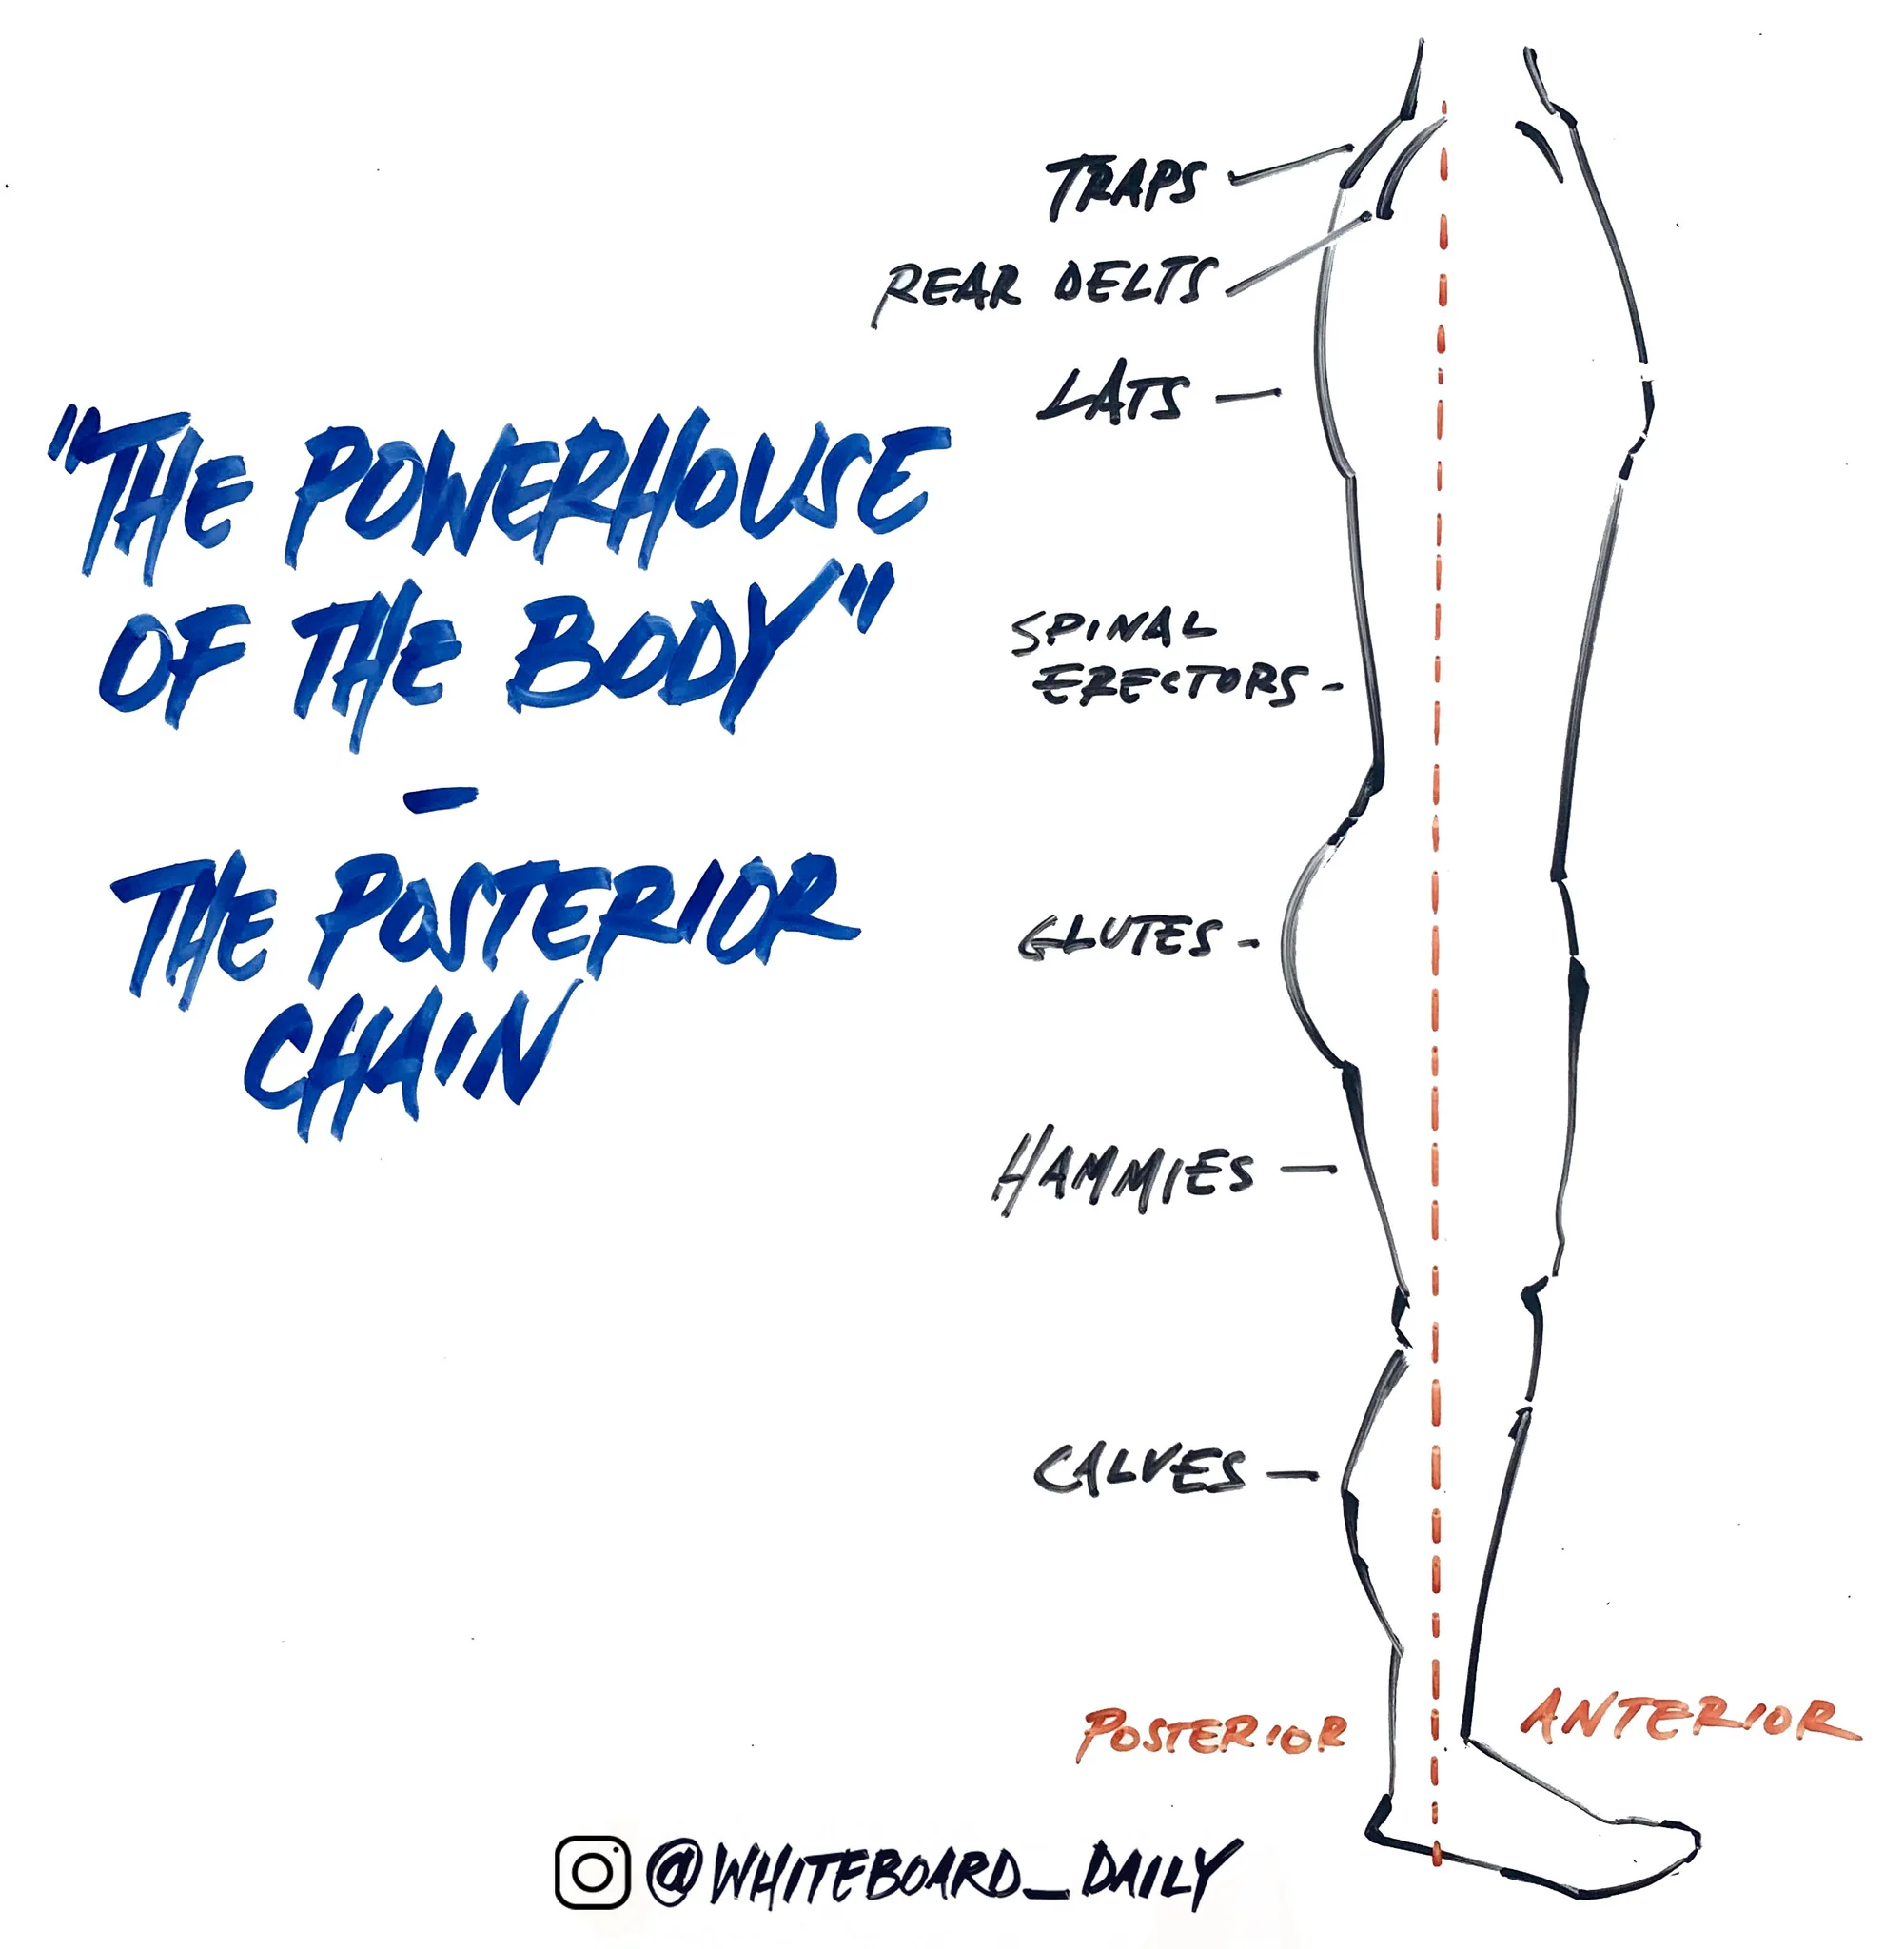 "THE POWERHOUSE
OF THE BODY"
-
THE POSTERIOR
CHAIN
TRAPS
REAR DELTS
LATS
SPINAL
ERECTORS
GLUTES
HAMMIES
CALVES
POSTERIOR
ANTERIOR
@WHITEBOARD_DAILY